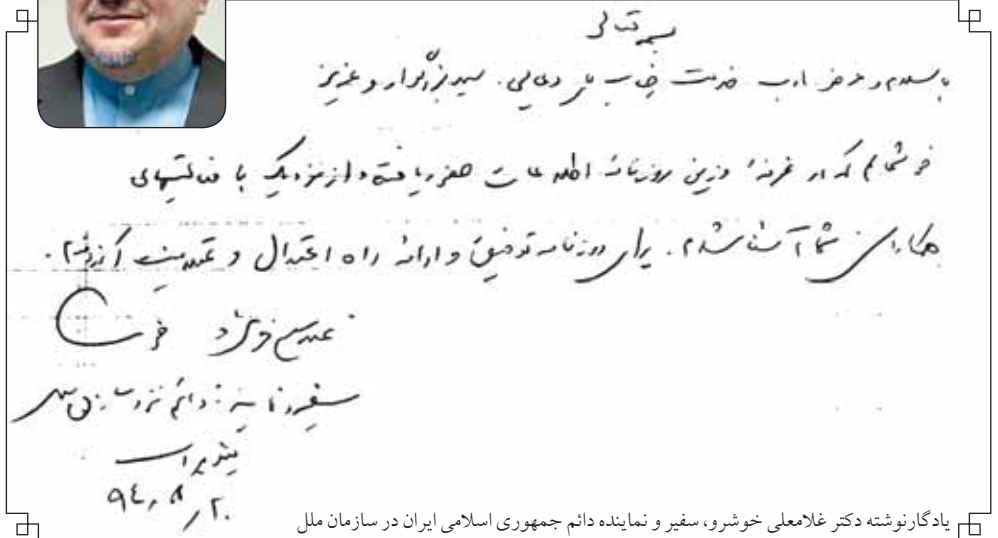 بسمه تعالی
با سلام و عرض ادب خدمت جناب آقای دعایی. سید بزرگوار و عزیز
خوشحالم که در غرفهٔ وزین روزنامه اطلاعات حضور یافته و از نزدیک با فعالیتهای
همکاران شما آشنا شدم. برای روزنامه توفیق و ادامه راه اعتدال و عقلانیت آرزومندم.
غلامعلی خوشرو
سفیر و نماینده دائم نزد سازمان ملل
نیویورک
۹۴٫۸٫۲۰
یادگارنوشته دکتر غلامعلی خوشرو، سفیر و نماینده دائم جمهوری اسلامی ایران در سازمان ملل